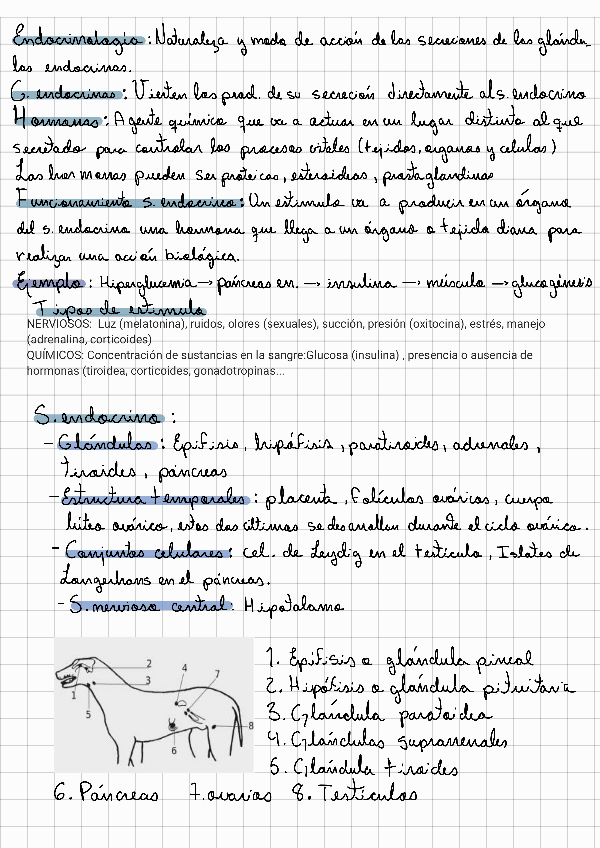 Endocrinología: Naturaleza y modo de acción de las secreciones de las glándu-
las endocrinas.
G. endocrinas: Vierten los prod. de su secreción directamente al s. endocrino
Hormonas: Agente químico que va a actuar en un lugar distinto al que
secretado para controlar los procesos vitales (tejidos, organos y celulas)
Las hormonas pueden ser proteicas, esteroideas, prostaglandinas
Funcionamiento s. endocrino: Un estimulo va a producir en un órgano
del s. endocrino una hormona que llega a un órgano o tejido diana para
realizar una acción biológica.
Ejemplo: Hiperglucemia → páncreas en. → insulina → músculo → glucogénesis
Tipos de estimulo
NERVIOSOS: Luz (melatonina), ruidos, olores (sexuales), succión, presión (oxitocina), estrés, manejo
(adrenalina, corticoides)
QUÍMICOS: Concentración de sustancias en la sangre:Glucosa (insulina) , presencia o ausencia de
hormonas (tiroidea, corticoides, gonadotropinas...
S. endocrino:
- Glándulas: Epífisis, hipófisis, paratiroides, adrenales,
tiroides, páncreas
- Estructura temporales: placenta, folículos ováricos, cuerpo
lúteo ovárico, estos dos últimas se desarrollan durante el ciclo ovárico.
- Conjuntos celulares: cel. de Leydig en el testículo, Islotes de
Langerhans en el páncreas.
- S. nervioso central: Hipotalamo
1. Epífisis o glándula pineal
2. Hipófisis o glándula pituitaria
3. Glándula paratoidea
4. Glándulas suprarrenales
5. Glándula tiroides
6. Páncreas 7. ovarios 8. Testículos
2
4
3
7
1
5
6
8